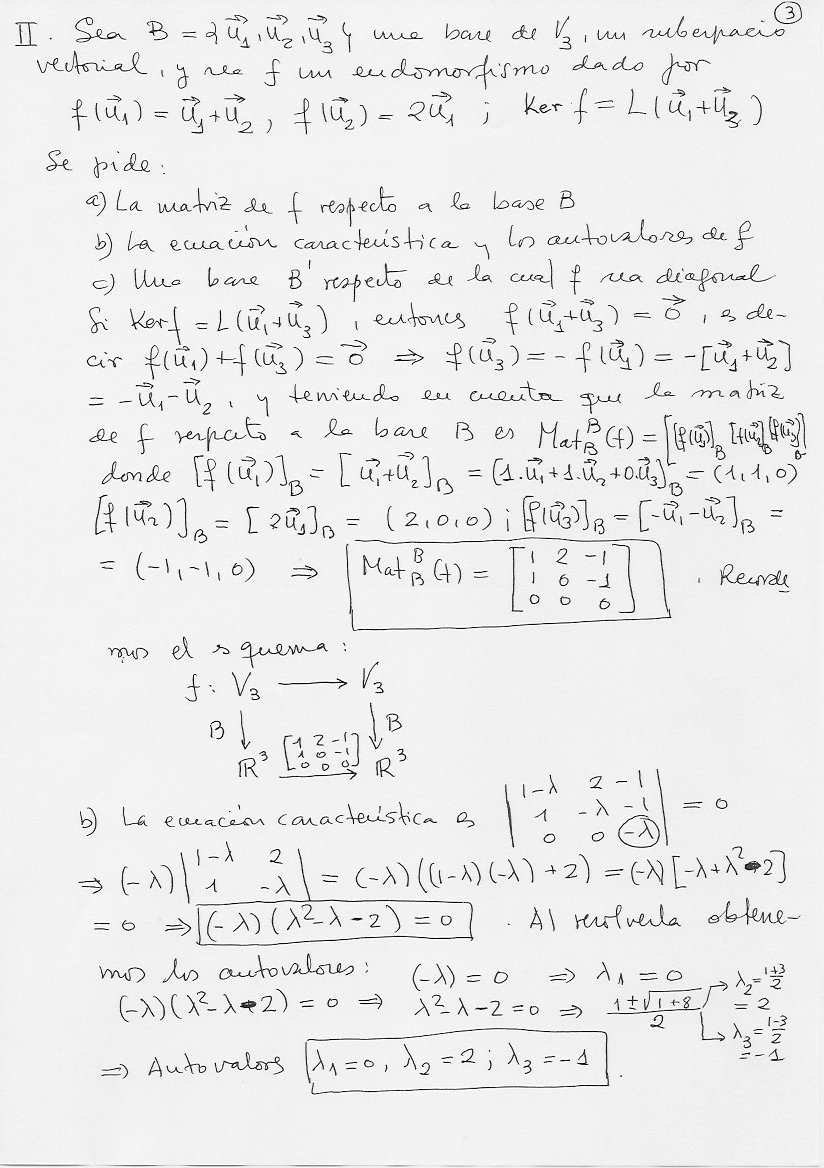 3
II. Sea B = {u⃗₁, u⃗₂, u⃗₃} una base de V₃, un subespacio
vectorial, y sea f un endomorfismo dado por
f(u⃗₁) = u⃗₁+u⃗₂, f(u⃗₂) = 2u⃗₁ ; Ker f = L(u⃗₁+u⃗₃)
Se pide:
a) La matriz de f respecto a la base B
b) La ecuación característica y los autovalores de f
c) Una base B' respecto de la cual f sea diagonal
Si Ker f = L(u⃗₁+u⃗₃), entonces f(u⃗₁+u⃗₃) = 0⃗, es de-
cir f(u⃗₁)+f(u⃗₃) = 0⃗ ⇒ f(u⃗₃) = -f(u⃗₁) = -[u⃗₁+u⃗₂]
= -u⃗₁-u⃗₂, y teniendo en cuenta que la matriz
de f respecto a la base B es Mat_B^B(f) = [[f(u⃗₁)]_B [f(u⃗₂)]_B [f(u⃗₃)]_B]
donde [f(u⃗₁)]_B = [u⃗₁+u⃗₂]_B = [1.u⃗₁+1.u⃗₂+0.u⃗₃]_B = (1,1,0)
[f(u⃗₂)]_B = [2u⃗₁]_B = (2,0,0) ; [f(u⃗₃)]_B = [-u⃗₁-u⃗₂]_B =
= (-1,-1,0) ⇒ Mat_B^B(f) = [1 2 -1
1 0 -1
0 0 0] . Recorde
mos el esquema:
f: V₃ ⟶ V₃
B ↓ [1 2 -1
1 0 -1
0 0 0] ↓ B
ℝ³ ⟶ ℝ³
b) La ecuación característica es |1-λ 2 -1
1 -λ -1
0 0 -λ| = 0
⇒ (-λ) |1-λ 2
1 -λ| = (-λ)((1-λ)(-λ)+2) = (-λ)[-λ+λ²-2]
= 0 ⇒ (-λ)(λ²-λ-2) = 0 . Al resolverla obtene-
mos los autovalores: (-λ) = 0 ⇒ λ₁ = 0
(-λ)(λ²-λ-2) = 0 ⇒ λ²-λ-2 = 0 ⇒ (1±√(1+8))/2
λ₂ = (1+3)/2 = 2
λ₃ = (1-3)/2 = -1
⇒ Autovalors λ₁=0, λ₂=2 ; λ₃=-1 .